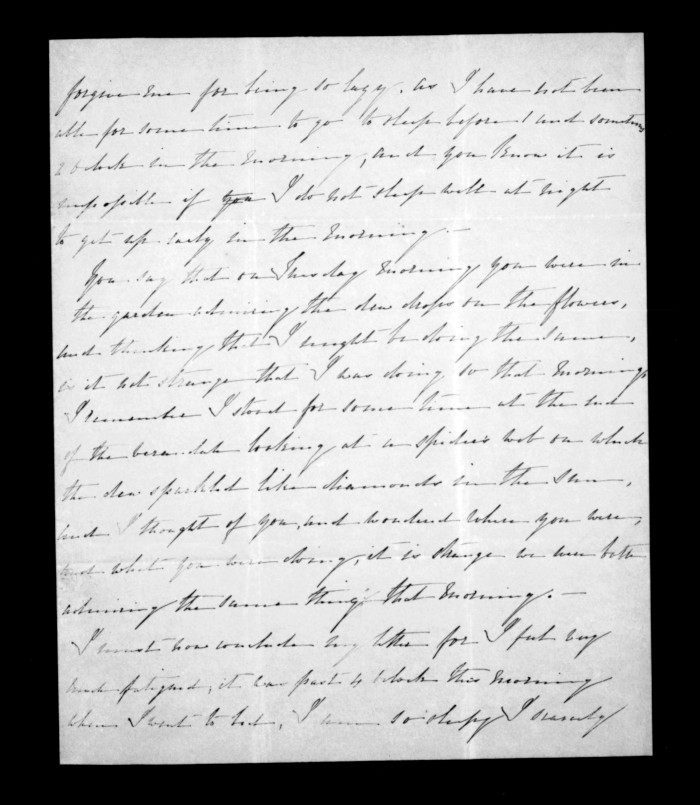 forgive me for being so lazy. as I have not been
able for some time to go to sleep before 1 and sometimes
2 o clock in the morning, and you know it is
impossible if you I do not sleep well at night
to get up early in the morning. —
You say that on Tuesday morning you were in
the garden admiring the dew drops on the flowers,
and thinking that I might be doing the same,
is it not strange that I was doing so that morning,
I remember I stood for some time at the end
of the verandah looking at a spiders web on which
the dew sparkled like diamonds in the sun,
and I thought of you, and wondered where you were,
and what you were doing, it is strange we were both
admiring the same things that morning. —
I must now conclude my letter for I feel very
much fatigued, it was past 4 o clock this morning
when I went to bed, I am so sleepy I scarcely